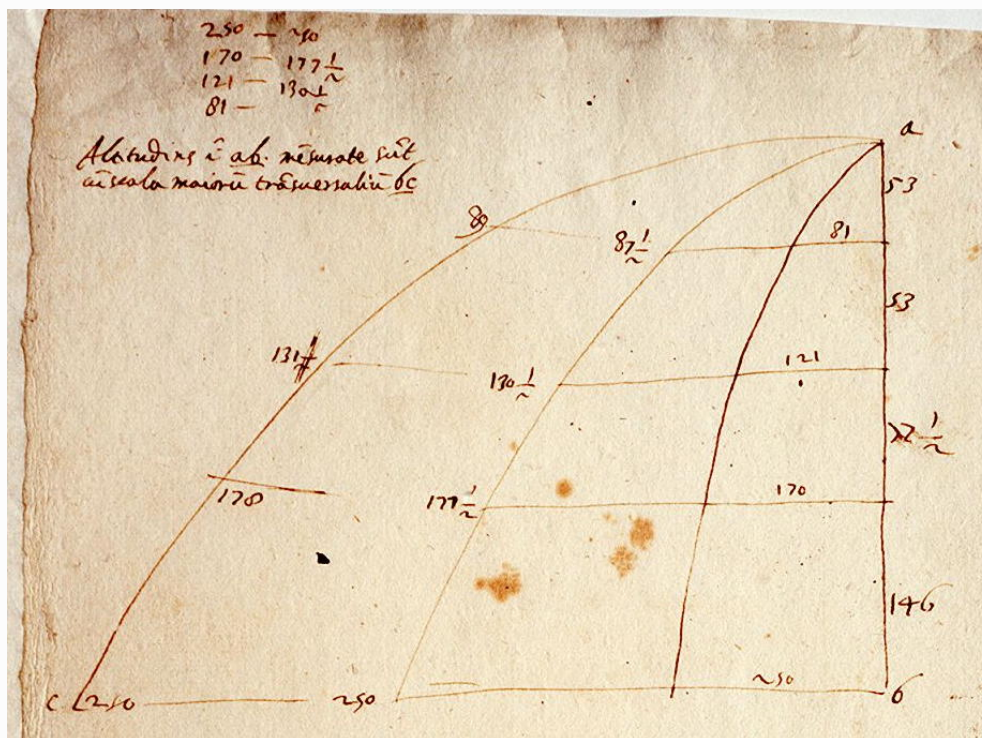 250 — 250
170 — 177 1/2
121 — 130 1/2
81 —
Altitudins ī ab. mēsurate sūt
cū scala maiorū trāsversaliū bc
a
53
89
87 1/2
81
53
131
130 1/2
121
1/2
178
177 1/2
170
146
c 250
250
250
b